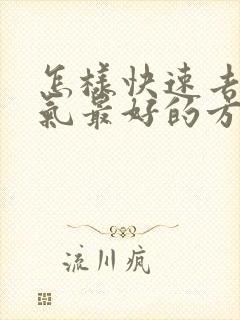 怎樣快速
氣最好的方
流川疯